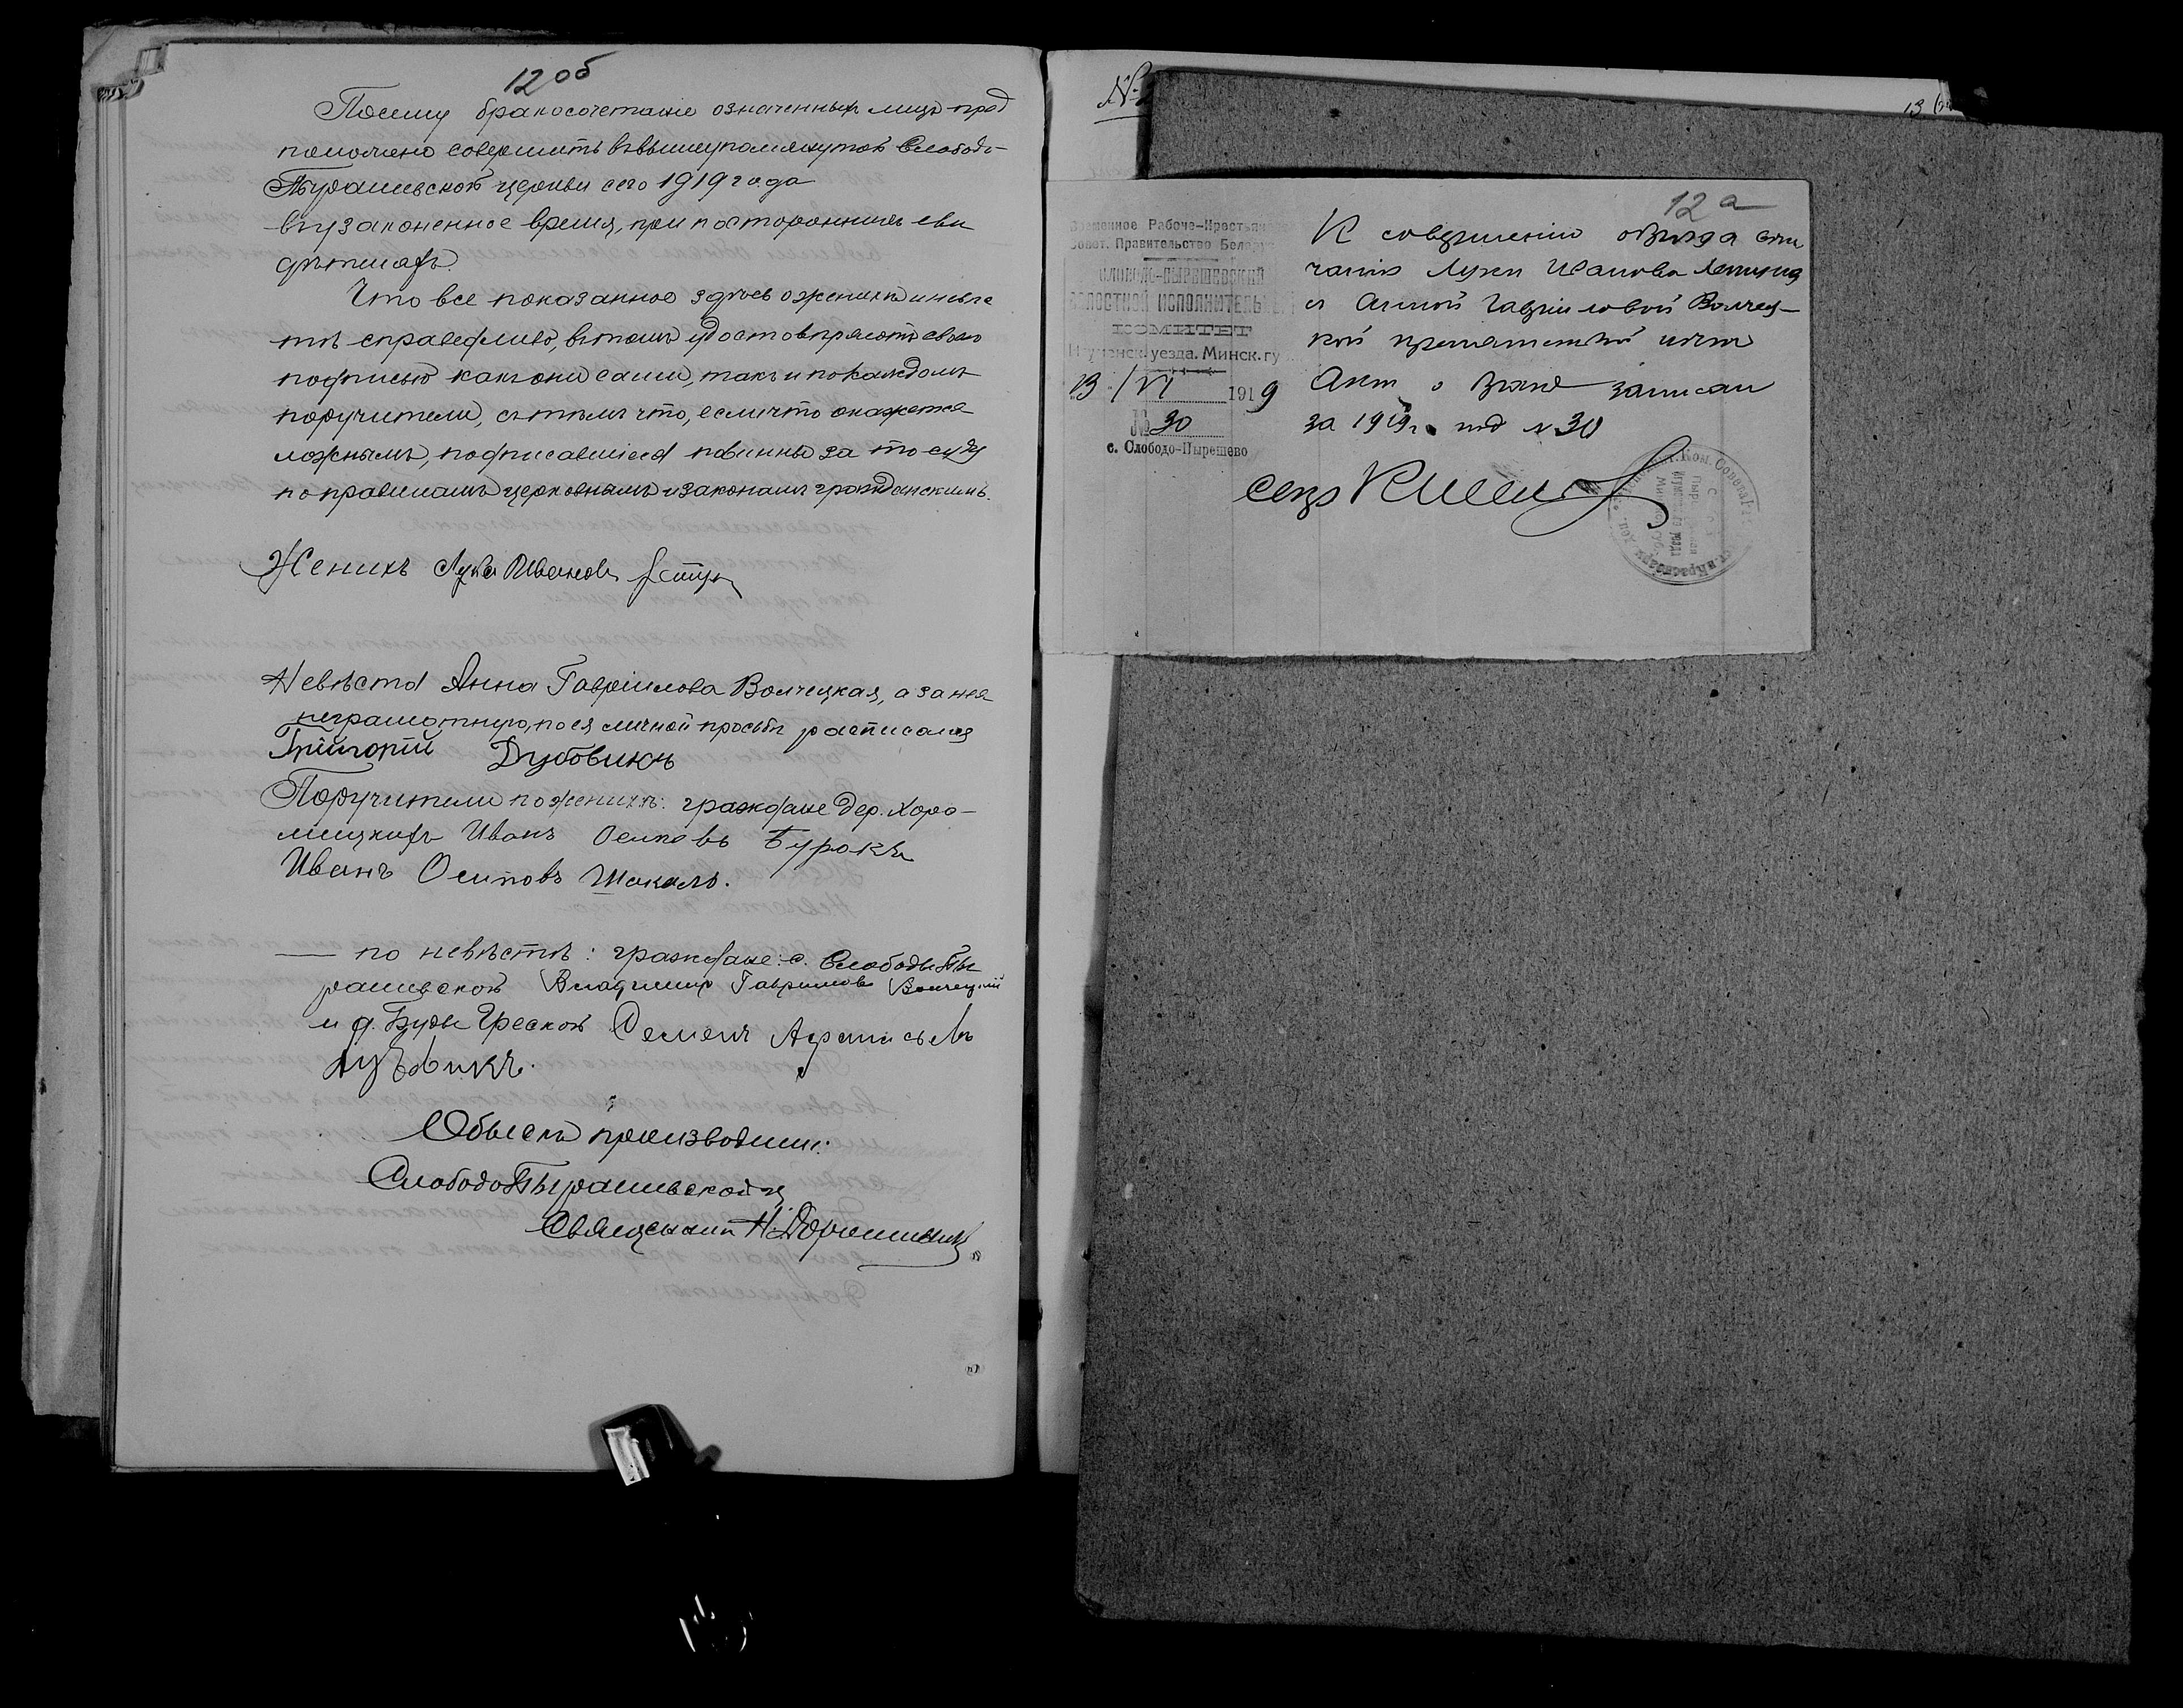 12 об
Посему бракосочетанiе означенныхъ лицъ пред
положено совершить въ вышеупомянутой Слободо-
Пырашевской церкви сего 1919 года
въ узаконенное время, при постороннихъ сви
дѣтеляхъ.
Что все показанное здѣсь о женихѣ и невѣс
тѣ справедливо, въ томъ удостовѣряютъ своею
подписью какъ они сами, такъ и по каждомъ
поручители, съ тѣмъ что, если что окажется
ложнымъ, подписавшiеся повинны за то суду
по правиламъ церковнымъ и законамъ гражданскимъ.
Женихъ Лука Ивановъ
Невѣста Анна Гаврiилова Волчецкая, а за нея
неграмотную, по ея личной просьбѣ расписался
Григорiй Дубовикъ
Поручители по женихѣ: граждане дер. Хоро-
мецкихъ Иванъ Осиповъ Буракъ
Иванъ Осиповъ Шакаль.
— по невѣстѣ: граждане: с. Слободы Пы
рашевской Владимиръ Гавриловъ Волчецкiй
и д. Буды Гресской Семенъ
Дубовикъ.
Обыскъ производили:
Слободо Пырашевской ц.
Священникъ Н.
№
13
12 а
Временное Рабоче-Крестьян
Совет. Правительство Белорус
СЛОБОДО-ПЫРЕШЕВСКИЙ
ВОЛОСТНОЙ ИСПОЛНИТЕЛЬН
КОМИТЕТ
Игуменск. уезда. Минск. гу
13 / VI 1919
№ 30
с. Слободо-Пырешево
К совершению обряда вен
чания Луки Иванова
с Анной Гавриловой Волчец-
кой препятствий нет
Акт о браке записан
за 1919 г. под № 30
Секр